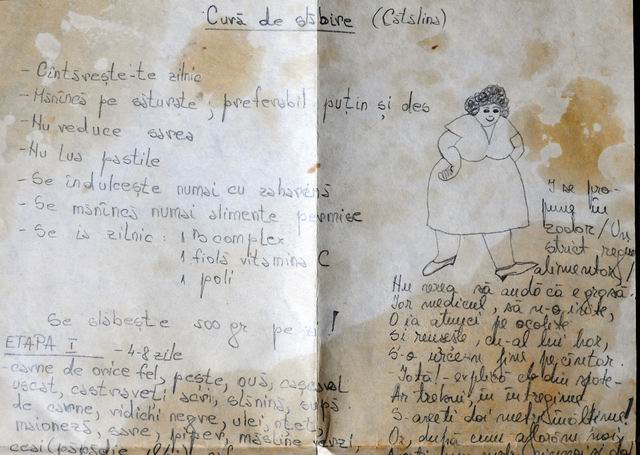 Cură de slăbire (Cătălina)
- Cîntărește-te zilnic
- Mănîncă pe săturate ; preferabil puțin și des
- Nu reduce sarea
- Nu lua pastile
- Se îndulcește numai cu zaharină
- Se mănîncă numai alimente permise
- Se ia zilnic : 1 B complex
1 fiolă vitamina C
1 poli
Se slăbește 500 gr pe zi !
ETAPA I - 4-8 zile
- carne de orice fel, pește, ouă, cașcaval
uscat, castraveți acri, slănină, supă
de carne, ridichi negre, ulei, oțet,
maioneză, sare, piper, măsline verzi,
ceai (păpădie
I se pro-
pune în
zodor / Un
strict regim
alimentar /
Nu vrea să audă că e grasă
Iar medicul, să n-o irite,
O ia atunci pe ocolite
Și reușește, de-al lui hor,
S-o urce-n fine pe cîntar.
- Iată! - explică el din
Ar trebui, în întregime
S-aveți doi metri înălțime!
Or, după cum aflarăm noi,